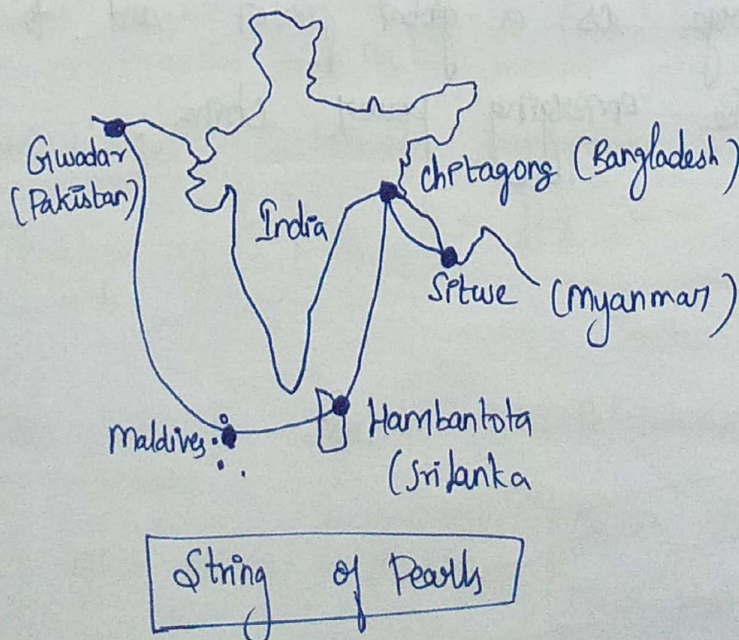 Gwadar
(Pakistan)
chitagong (Bangladesh)
India
Sitwe (Myanmar)
Maldives
Hambantota
(Srilanka
String of Pearls